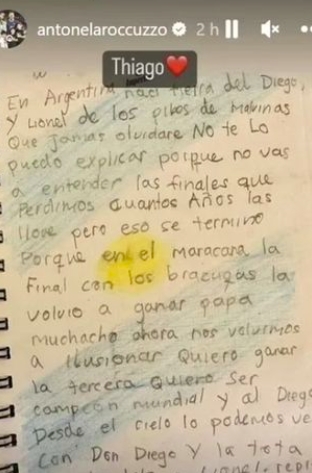 antonelaroccuzzo 2 h
Thiago
En Argentina naci tierra del Diego,
y Lionel de los pibes de Malvinas
Que Jamas olvidare No te Lo
puedo explicar porque no vas
a entender las finales que
Perdimos cuantos Años las
llore pero eso se termino
Porque en el maracana la
Final con los brazugas la
volvio a ganar papa
muchacho ahora nos volvimos
a ilusionar Quiero ganar
la tercera Quiero Ser
campeon mundial y al Diego
Desde el cielo lo podemos ve
Con Don Diego Y la tota